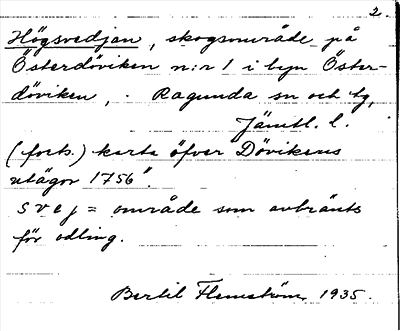 2.
Högsvedjan, skogsområde på
Österdöviken n:r 1 i byn Öster-
döviken, Ragunda sn och tg,
Jämtl. l.
(forts.) karta öfver Dövikens
utägor 1756".
svej = område som avbränts
för odling.
Bertil Flemström, 1935.